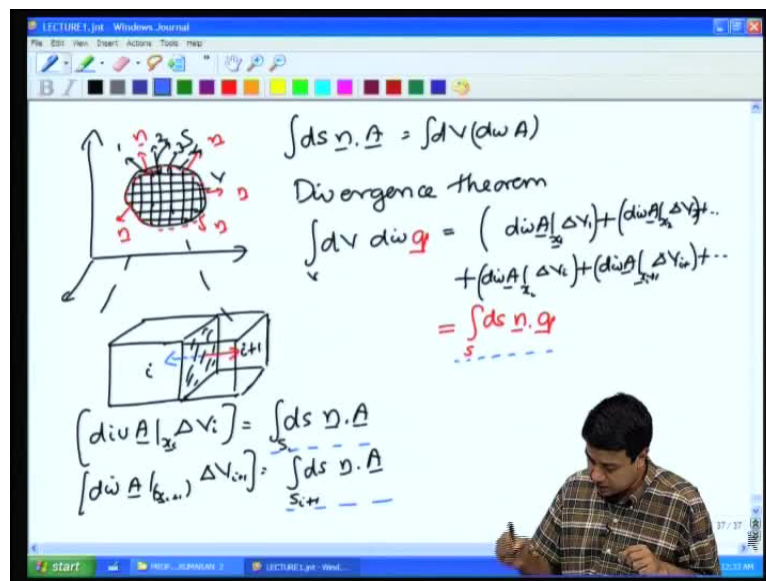 LECTURE1.jnt - Windows Journal
File Edit View Insert Actions Tools Help
B I
∫ds n. A = ∫dV (div A)
Divergence theorem
∫_V dV div g = ( div A|_x1 ΔV1)+(div A|_x2 ΔV2)+..
+(div A|_xi ΔVi)+(div A|_xi+1 ΔVi+1)+...
= ∫_S ds n. g
1 n 2 3 S 4 n
V
n
n S n
i i+1
[div A|_xi ΔVi] = ∫_Si ds n. A
[div A|_(xi+1) ΔVi+1] = ∫_Si+1 ds n. A
37 / 37
start PROF...KUMARAN 2 LECTURE1.jnt - Wind...
12:33 AM